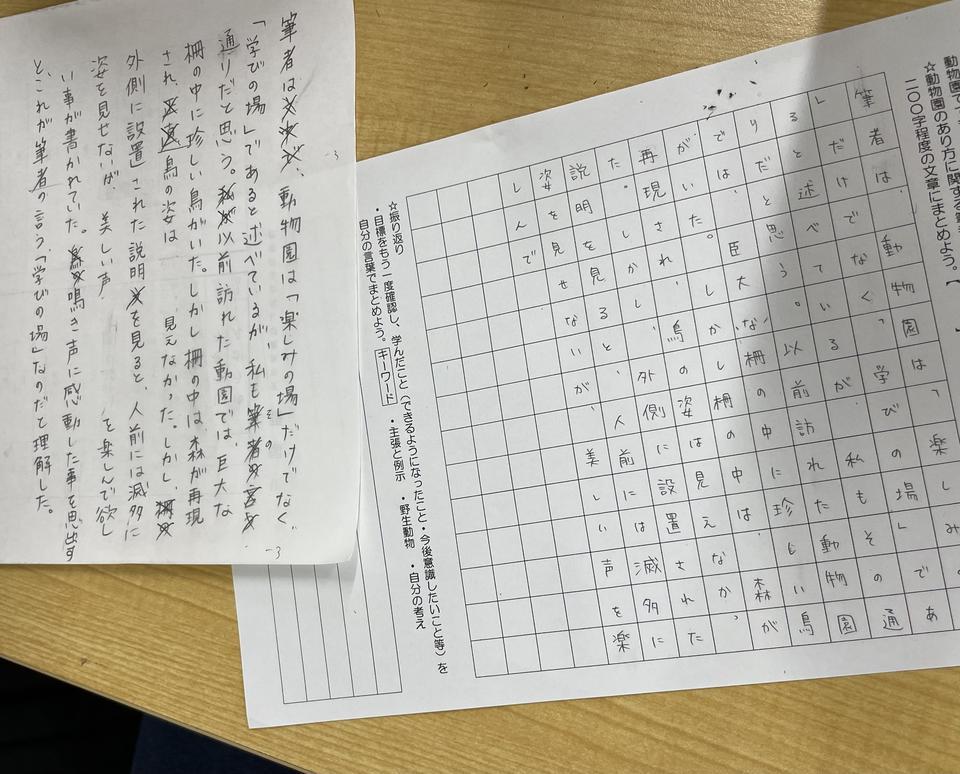 動物園で
☆動物園のあり方に関する筆
二〇〇字程度の文章にまとめよう。【
筆者は、動物園は「楽しみの
」だけでなく、「学びの場」であ
ると述べているが、私もその通
りだと思う。以前訪れた動物園
では、臣大な柵の中に珍しい鳥
がいた。しかし柵の中は、森が
再現され、鳥の姿は見えなかっ
た。しかし、外側に設置された
説明を見ると、人前には滅多に
姿を見せないが、美しい声を楽
しんで
☆振り返り
・目標をもう一度確認し、学んだこと（できるようになったこと・今後意識したいこと等）を
自分の言葉でまとめよう。 キーワード ・主張と例示 ・野生動物 ・自分の考え
筆者は、動物園は「楽しみの場」だけでなく、
「学びの場」であると述べているが、私もその
通りだと思う。以前訪れた動園では、巨大な
柵の中に珍しい鳥がいた。しかし柵の中は森が再現
され、鳥の姿は見えなかった。しかし、
外側に設置された説明を見ると、人前には滅多に
姿を見せないが、美しい声を楽しんで欲し
い事が書かれていた。鳴き声に感動した事を思出す
と、これが筆者の言う、「学びの場」なのだと理解した。